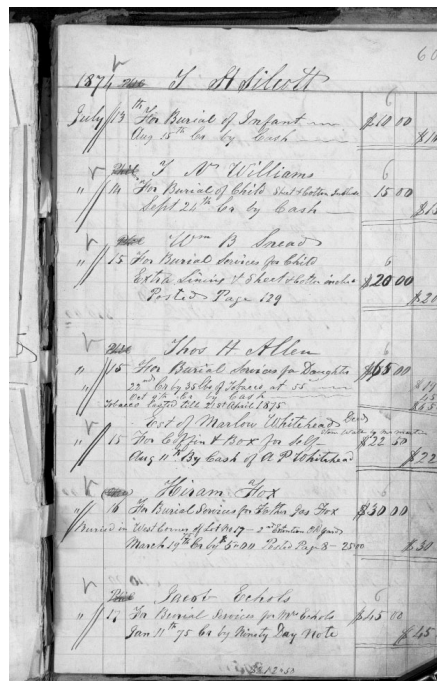 60
1874 T H Silcott
6
July 13th For Burial of Infant $10 00
Aug 15th Cr by Cash $10
T N Williams
6
" 14 For Burial of Child Sheet & Cotton 15 00
Sept 24th Cr by Cash $15
Wm B Snead
6
" 15 For Burial Services for Child
Extra Lining & Sheet & Cotton $20 00
Posted Page 129 $20
Thos H Allen
6
" 15 For Burial Services for Daughter
22nd Cr by 35 lbs of Tobacco at 55
Oct 9th Cr by Cash
Tobacco till 21st April 1875
Est of Marlow Whitehead
" 15 For Coffin & Box for self $22 50
Aug 11th By Cash of A P Whitehead $22
Hiram Fox
6
" 16 For Burial Services for Father Jas Fox $30 00
Buried in West Corner of Lot No 17 - 2nd
March 19th Cr by $5.00 Posted Page 8 - 25 00 $30
Jacob Echols
6
" 17 For Burial Services for Mrs Echols $45 00
Jan 11th 75 Cr by Ninety Day Note $45